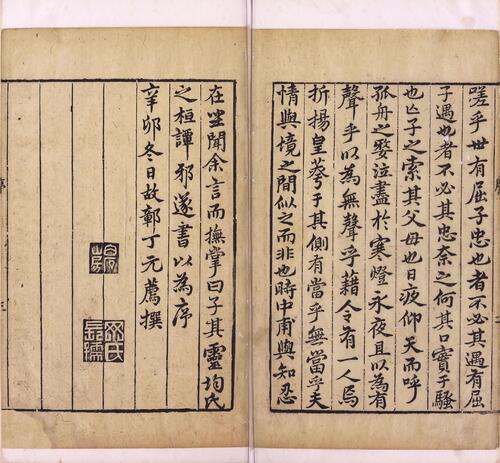 嗟乎世有屈子忠也者不必其遇有屈
子遇也者不必其忠柰之何其口實于騷
也亾子之索其父母也日疲仰天而呼
孤舟之嫠泣盡於寒燈永夜且以為有
聲乎以為無聲乎藉令有一人焉
折揚皇荂于其側有當乎無當乎夫
情與境之間似之而非也時中甫與知忍
在坐聞余言而撫掌曰子其靈均氏
之桓譚邪遂書以為序
辛卯冬日故鄣丁元薦撰